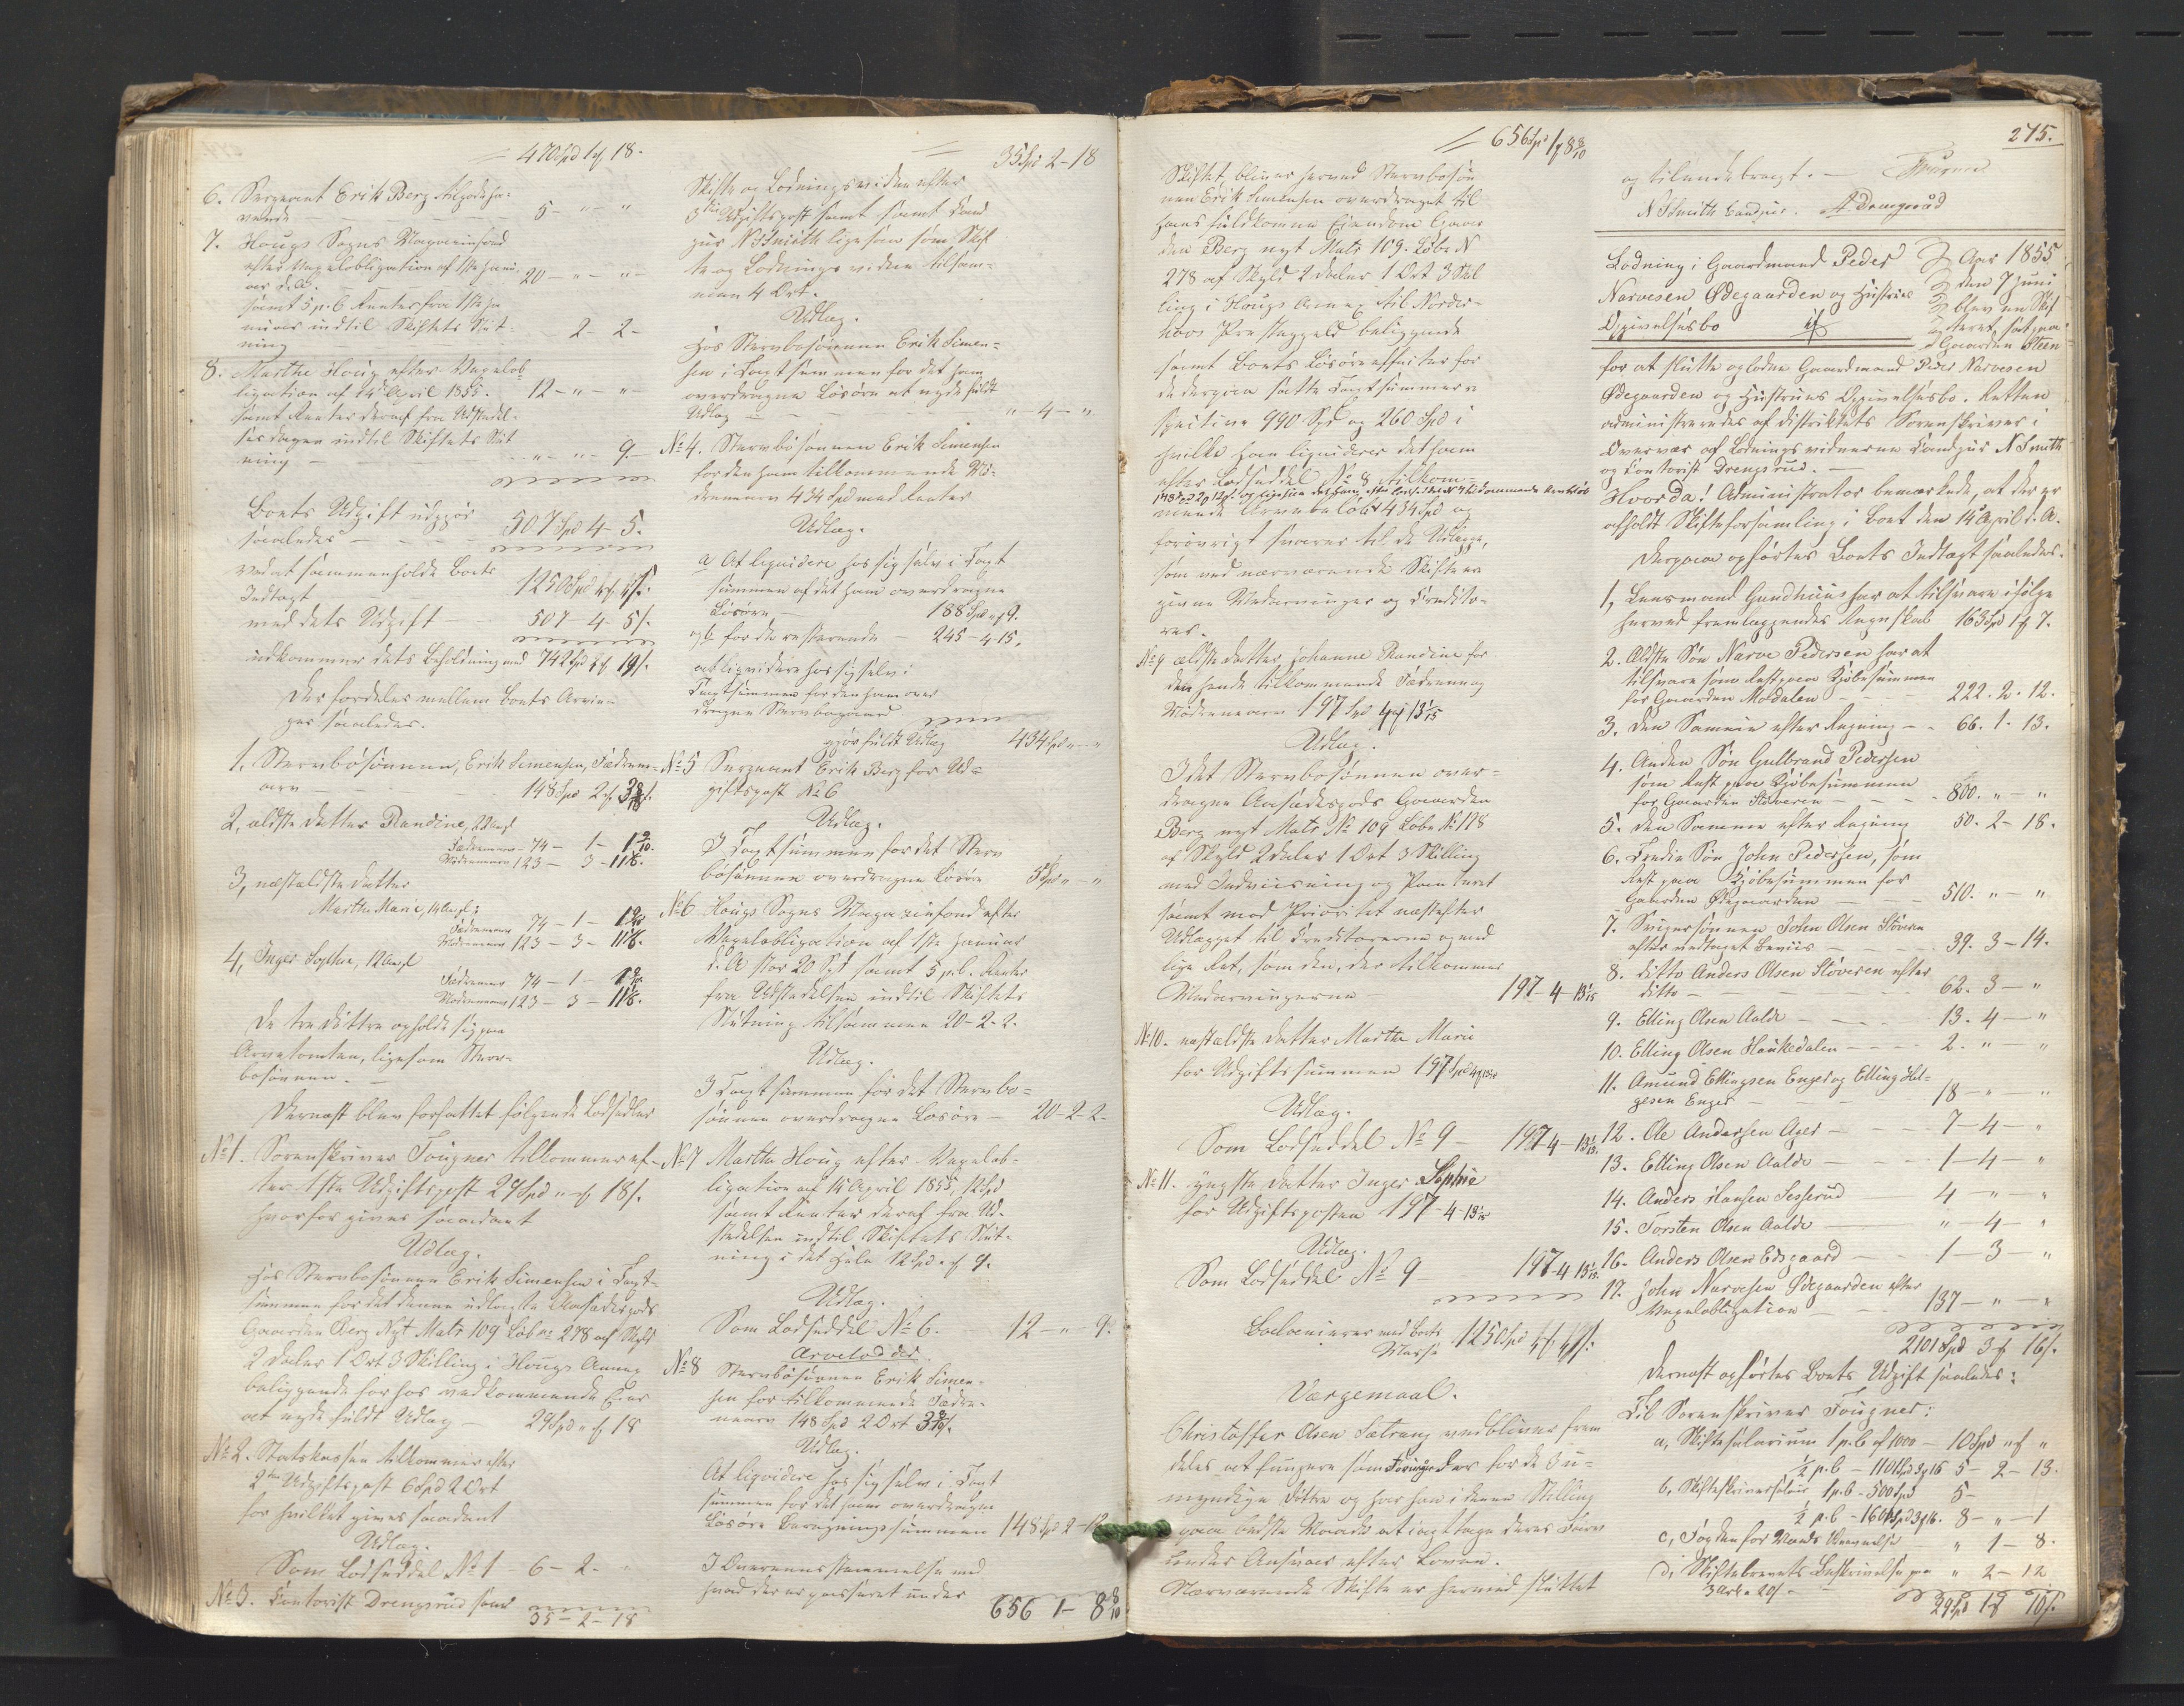 470 Spd 1 ȸ 18.
6. Sergeant Erik Berg tilgodeha-
vende — 5 - " - "
7. Hougs Sogns Magasinfond
efter Vexelobligation af 1ste Janu-
ar d. A. 20 - " - " -
samt 5 p. C. Renter fra 1ste Ja-
nuar indtil Skiftets Slut-
ning — 2 - 2 -
8. Marthe Houg efter Vexelob-
ligation af 14 April 1855. 12 - " - "
samt Renter deraf fra Udstedel-
sesdagen indtil Skiftets Slut
ning — " - " - 9.
Boets Udgift udgjør
saaledes — 507 Spd 4 - 5.
Ved at sammenholde Boets
Indtægt 1250 Spd
med dets Udgift — 507 - 4 - 5 s.
udkommer dets Beholdning med 742 Spd 19 s.
Der fordeles mellem Boets Arvin-
ger saaledes.
1, Stervbosønnen, Erik Simensen, Fædrene-
arv — 148 Spd 2
2, ældste Datter Randine, 22 Aar gl
Fædrenearv - 74 - 1 - 1 9/10.
Mødrenearv 123 - 3 - 11
3, næstældste Datter
Marthe Marie, 14 Aar gl:
Fædrenearv 74 - 1 - 1 9/10
Mødrenearv 123 - 3 - 11
4, Inger Sophie, 12 Aar gl
Fædrenearv 74 - 1 - 1 9/10
Mødrenearv 123 - 3 - 11
De tre Døttre opholde sig paa
Arvetomten, ligesom Sterv-
bosønnen. —
Dernæst blev forfattet følgende Lodsedler
No 1. Sorenskriver Fougner tilkommer ef-
ter 1ste Udgiftspost 29 Spd " ȸ 18 s.
hvorfor gives saadant
Udlæg.
Hos Stervbosønnen Erik Simensen i Taxt-
summen for det denne udlagte Aasædesgods
Gaarden Berg Nyt Matr 109 Løb No 278 af Skyld
2 Daler 1 Ort 3 Skilling i Hougs Annex
beliggende for hos vedkommende Eier
at nyde fuldt Udlæg — 29 Spd " ȸ 18
No 2. Statskassen tilkommer efter
2den Udgiftspost 6 Spd 2 Ort
for hvilket gives saadant
Udlæg.
Som Lodseddel No 1 - 6 - 2 -
No 3. Contorist Drengsrud som
35 - 2 - 18
35 Spd 2 - 18
Skifte og Lodningsvidne efter
3die Udgiftspost samt Cand
jur N Smith ligesom som Skif
te og Lodningsvidne tilsam-
men 4 Ort.
Udlæg.
Hos Stervbosønnen Erik Simen-
sen i Taxtsummen for det ham
overdragne Løsøre at nyde fuldt
Udlæg — " - 4 - "
No 4. Stervbosønnen Erik Simensen
for den ham tilkommende Mø-
drenearv 434 Spd med Renter
Udlæg.
a At liquidere hos sig selv i Taxt
summen af det ham overdragne
Løsøre — 188 Spd " ȸ 9.
og b for de resterende — 245 - 4 15.
at liqvidere hos sig selv i
Taxtsummen for den ham over
dragne Stervbogaard
gjør fuldt Udlæg 434 Spd " - "
No 5 Sergeant Erik Berg for Ud-
giftspost No 6
Udlæg.
I Taxtsummen for det Sterv
bosønnen overdragne Løsøre 5 Spd " - "
No 6 Hougs Sogns Magazinfond efter
Vexelobligation af 1ste Januar
d. A. stor 20 Spd samt 5 p.C. Renter
fra Udstedelsen indtil Skiftets
Slutning tilsammen 20 - 2 - 2.
Udlæg.
I Taxtsummen for det Stervbo-
sønnen overdragne Løsøre — 20 - 2 - 2 -
No 7 Marthe Houg efter Vexelob-
ligation af 14 April 1855, 12 Spd
samt Renter deraf fra Ud-
stedelsen indtil Skiftets Slut-
ning i det Hele 12 Spd " ȸ 9.
Udlæg.
Som Lodseddel No 6. 12 - " - 9.
Arvelodder.
No 8 Stervbosønnen Erik Simen-
sen for tilkommende Fædre-
nearv 148 Spd 2 Ort
Udlæg.
At liqvidere hos sig selv i Taxt
summen for det ham overdragne
Løsøre 148 Spd 2 - 12
I Overeensstemmelse med
hvad der er passeret under 656 1 - 8 8/10
656 Spd 1 ȸ 8 8/10
Skiftet bliver herved Stervbosøn
nen Erik Simensen overdraget til
hans fuldkomne Eiendom Gaar
den Berg nyt Matr 109. Løbe N
278 af Skyld 2 Daler 1 Ort 3 Skil
ling i Hougs Annex til Norder-
hovs Præstegjeld beliggende
samt Boets Løsøreeffecter for
de derpaa satte Taxtsummer re
spective 990 Spd og 260 Spd i
hvilke han liquiderer det ham
efter Lodseddel No 8 tilkom-
mende Arvebeløb 434 Spd og
forøvrigt svarer til de Udlægge,
som ved nærværende Skifte er
givne Medarvinger og Credito-
rer.
No 9 ældste Datter Johanne Randine for
den hende tilkommende Fædrene og
Mødrenearv 197 Spd 4 ȸ 13 1/15
Udlæg.
I det Stervbosønnen over-
dragne Aasædesgods Gaarden
Berg nyt Matr No 109 Løbe No 178
af Skyld 2 Daler 1 Ort 3 Skilling
med Indviisning og Panteret
samt med Prioritet næstefter
Udlægget til Creditorerne og med
lige Ret, som den, der tilkommer
Medarvingerne — 197 - 4 - 13 1/15
No 10. næstældste Datter Marthe Marie
for Udgiftssummen 197 Spd 4 ȸ 13 1/15
Udlæg.
Som Lodseddel No 9 — 197 - 4 - 13 1/15.
No 11. yngste Datter Inger Sophie
for Udgiftsposten 197 - 4 - 13 1/15
Udlæg.
Som Lodseddel No 9 — 197 - 4 13 1/15.
Balancerer med Boets
Masse 1250 Spd
Værgemaal.
Christoffer Olsen Sætrang vedbliver frem
deles at fungere som Formynder for de u-
myndige Døttre og har han i denne Stilling
paa bedste Maade at iagttage deres Tarv
under Ansvar efter Loven.
Nærværende Skifte er hermed sluttet
275.
og tilendebragt. — Fougner
N Smith Cand jur. A Drengsrud
Lodning i Gaardmand Peder
Narvesen Ødegaarden og Hustrues
Opgivelsesbo
Aar 1855
den 7 Juni
blev en Skif
teret sat paa
Gaarden Steen
for at slutte og lodne Gaardmand Peder Narvesen
Ødegaarden og Hustrues Opgivelsesbo. Retten
administreredes af Distriktets Sorenskriver i
Overvær af Lodningsvidnerne Cand jur N Smith
og Contorist Drengsrud. —
Hvorda! Administrator bemærkede, at der er
afholdt Skifteforsamling i Boet den 14 April d. A.
Derpaa opførtes Boets Indtægt saaledes.
1, Lensmand Gundhuus har at tilsvare ifølge
herved fremlæggendes Regnskab 163 Spd 1 ȸ 7.
2. Ældste Søn Narve Pedersen har at
tilsvare som Rest paa Kjøbesummen
for Gaarden Modalen — 222. 2. 12.
3. Den Samme efter Regning — 66. 1. 13.
4. Anden Søn Gulbrand Pedersen
som Rest paa Kjøbesummen
for Gaarden Støveren — 800. " - "
5. Den Samme efter Regning 50. 2 - 18.
6. Tredie Søn John Pedersen, som
Rest paa Kjøbesummen for
Gaarden Ødegaarden — 510. " - "
7. Svigersønnen John Olsen Støveren
efter vedtaget Beviis — 39. 3 - 14.
8. ditto Anders Olsen Støveren efter
ditto — 62. 3 - "
9. Elling Olsen Aalde — 13. 4 - "
10. Elling Olsen Haukedalen — 2. " - "
11. Amund Ellingsen Enger og Elling Hel-
gesen Enger — 18 - " - "
12. Ole Andersen Ager — 7 - 4 - "
13. Elling Olsen Aalde — 1 - 4 - "
14. Anders Hansen Sesserud 4 - " - "
15. Torsten Olsen Aalde — " - 4 - "
16. Anders Olsen Edsgaard — 1 - 3 - "
17. John Narvesen Ødegaarden efter
Vexelobligation — 137 - " - "
2101 Spd 3 ȸ 16 s.
Dernæst opførtes Boets Udgift saaledes:
Til Sorenskriver Fougner:
a, Skiftesalarium 1 p. C. af 1000 — 10 Spd " ȸ "
1/2 p. C. — 1101 Spd 3 ȸ 16 5 - 2 - 13.
b, 1 p. C. - 500 Spd 5 -
1/2 p. C. - 1601 Spd 3 ȸ 16. 8 - " - 1
" 1 - 8.
d, Skiftebrevets Beskrivelse paa " 2 - 12
3 Ark a 20 s. —
29 Spd 1 ȸ 10 s.